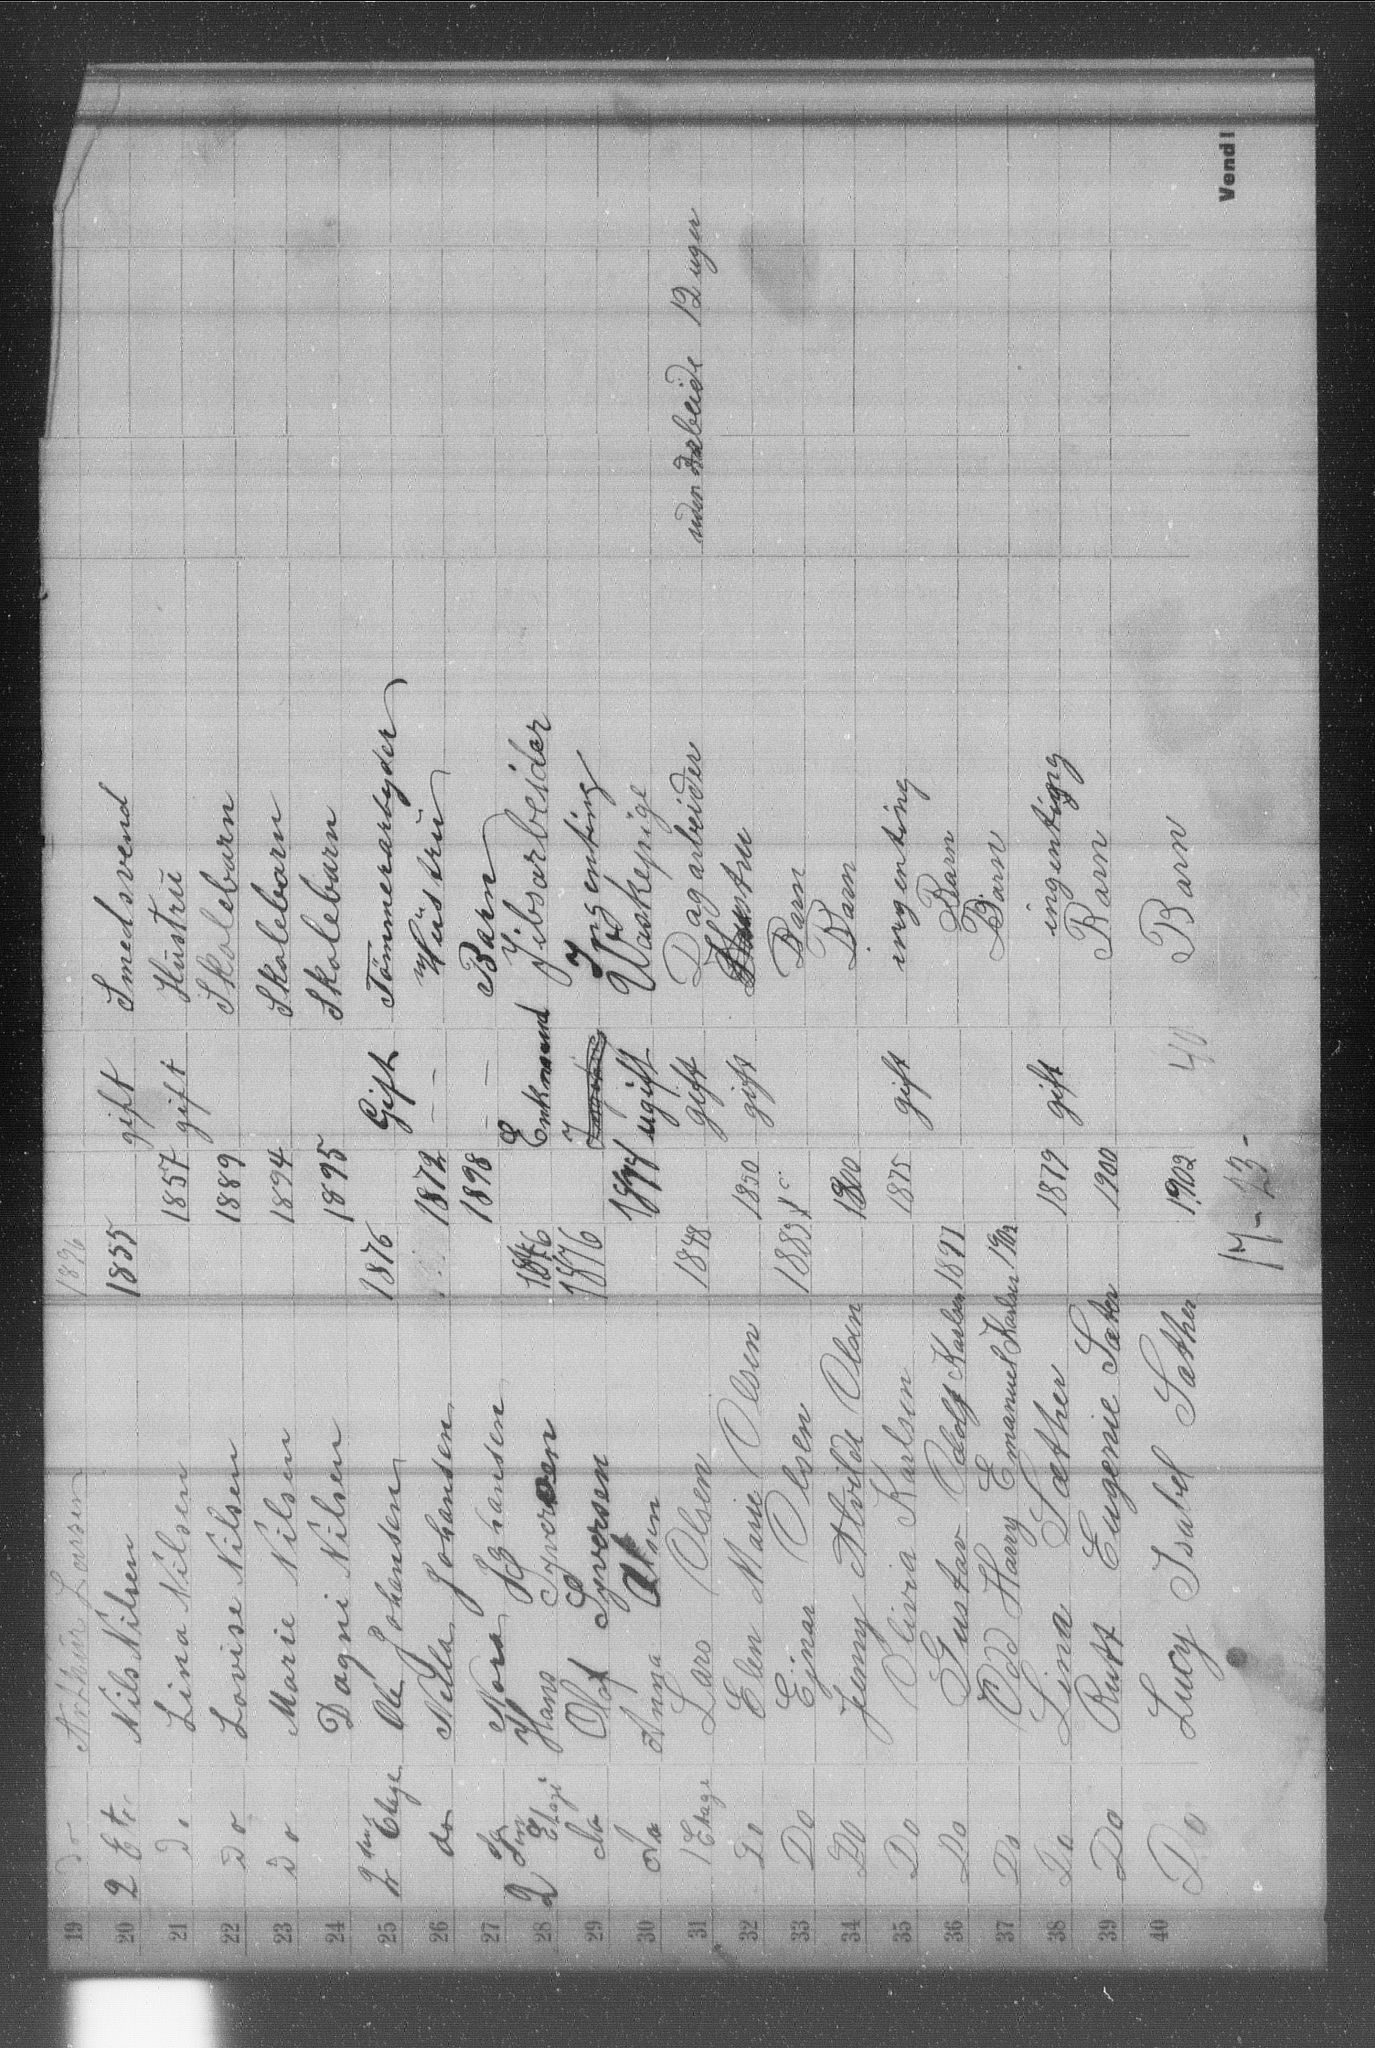 19 Do Arthur Larsen 1896
20 2 Et. Nils Nilsen 1855 gift Smedsvend
21 Do Lina Nilsen 1857 gift Hustru
22 Do Lovise Nilsen 1889 Skolebarn
23 Do Marie Nilsen 1894 Skolebarn
24 Dagni Nilsen 1895 Skolebarn
25 2 Etage Ole Johansen 1876 Gift Tömmerarbyder
26 do Nella Johansen 1872 — Hüstru
27 Do Nora Johansen 1898 — Barn
28 2 Etagi Hans Syversen 1846 Enkmand Jibsarbeider
29 Do Olaf Syversen 1876 Ingenting
30 Do Anna Olsen 1874 ugift Vaskepige
31 1 Etage Lars Olsen 1848 gift Dagarbeider uden Arbeide 12 uger
32 Do Elen Marie Olsen 1850 gift Hustru
33 Do Ejnar Olsen 1883 Barn
34 Do Jenny Alvilde Olsen 1900 Barn
35 Do Olivia Karlsen 1875 gift ingenting
36 Do Gustav Adolf Karlsen 1897 Barn
37 Do Odd Harry Emanuel Karlsen 1902 Barn
38 Do Lina Sæther 1879 gift ingenting
39 Do Rutt Eugenie Sæter 1900 Barn
40 Do Lucy Isabel Sæther 1902 Barn
40
17 - 23 -
Vend!